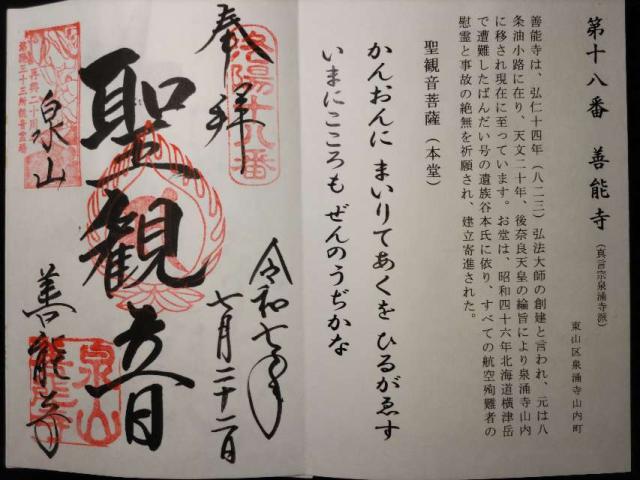 第十八番 善能寺（真言宗泉涌寺派）
東山区泉涌寺山内町
善能寺は、弘仁十四年（八二三）弘法大師の創建と言われ、元は八
条油小路に在り、天文二十年、後奈良天皇の綸旨により泉涌寺山内
に移され現在に至っています。お堂は、昭和四十六年北海道横津岳
で遭難したばんだい号の遺族谷本氏に依り、すべての航空殉難者の
慰霊と事故の絶無を祈願され、建立寄進された。
聖観音菩薩（本堂）
かんおんに まいりてあくを ひるがゑす
いまにこころも ぜんのうぢかな
洛陽十八番
奉拝
令和七年
七月二十二日
聖観音
再興二十周年
洛陽三十三所観音霊場
泉山
善能寺
泉山
善能寺